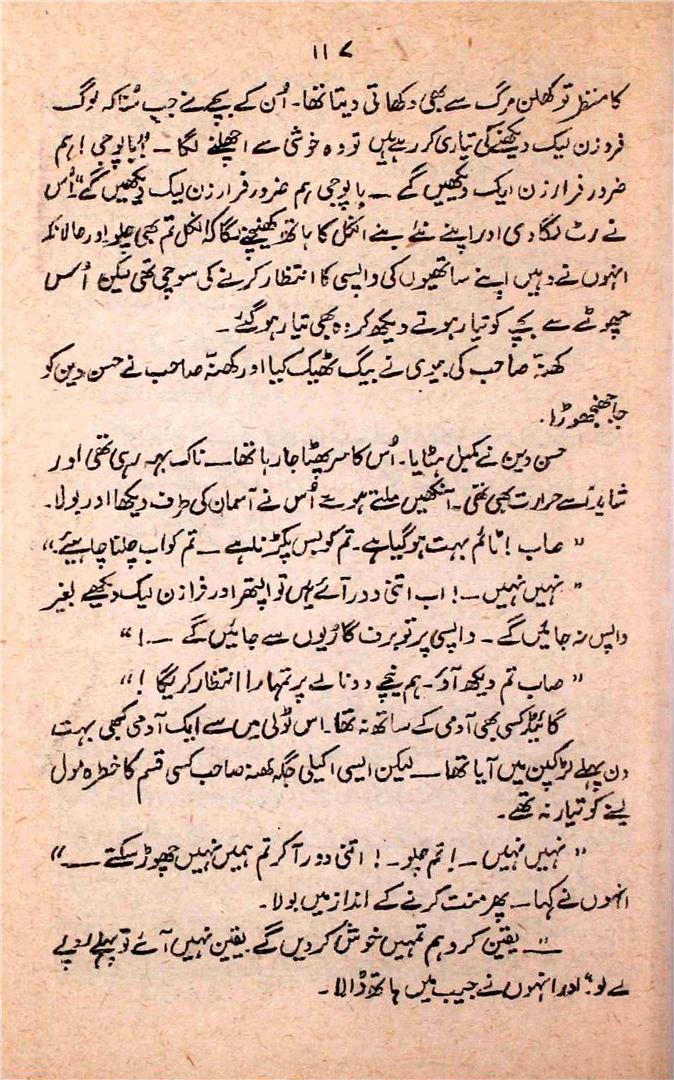 ۱۱۷
کا منظر تو کھلن مرگ سے بھی دکھائی دیتا تھا۔ اُن کے بچے نے جب سُنا کہ لوگ
فروزن لیک دیکھنے کی تیاری کر رہے ہیں تو وہ خوشی سے اچھلنے لگا۔ "پاپوجی! ہم
ضرور فرازن لیک دیکھیں گے۔ پاپوجی ہم ضرور فرازن لیک دیکھیں گے" اُس
نے رٹ لگا دی اور اپنے نئے بنے انکل کا ہاتھ کھینچنے لگا کہ انکل تم بھی چلو اور حالانکہ
انہوں نے وہیں اپنے ساتھیوں کی واپسی کا انتظار کرنے کی سوچی تھی لیکن اُس
چھوٹے سے بچے کو تیار ہوتے دیکھ کر وہ بھی تیار ہو گئے۔
کھنہ صاحب کی بیوی نے بیگ ٹھیک کیا اور کھنہ صاحب نے حسن دین کو
جا جھنجھوڑا۔
حسن دین نے کمبل ہٹایا۔ اُس کا سر پھٹا جا رہا تھا۔ ناک بہہ رہی تھی اور
شاید اُسے حرارت بھی تھی۔ آنکھیں ملتے ہوئے اُس نے آسمان کی طرف دیکھا اور بولا۔
"صاب! ٹائم بہت ہو گیا ہے۔ تم کو بس پکڑنا ہے۔ تم کو اب چلنا چاہیئے۔"
"نہیں نہیں۔! اب اتنی دور آئے ہیں تو اپتھر اور فرازن لیک دیکھے بغیر
واپس نہ جائیں گے۔ واپسی پر تو برف گاڑیوں سے جائیں گے۔!"
"صاب تم دیکھ آؤ۔ ہم نیچے دو نالے پر تمہارا انتظار کریگا!"
گائیڈ کسی بھی آدمی کے ساتھ نہ تھا۔ اس ٹولی میں سے ایک آدمی کبھی بہت
دن پہلے لڑکپن میں آیا تھا۔ لیکن ایسی اکیلی جگہ کھنہ صاحب کسی قسم کا خطرہ مول
لینے کو تیار نہ تھے۔
"نہیں نہیں۔! تم چلو۔! اتنی دور آ کر تم ہمیں نہیں چھوڑ سکتے۔"
انہوں نے کہا۔ پھر منت کرنے کے انداز میں بولا۔
"۔ یقین کرو ہم تمہیں خوش کر دیں گے یقین نہیں آئے تو پہلے روپے
لے لو" اور انہوں نے جیب میں ہاتھ ڈالا۔